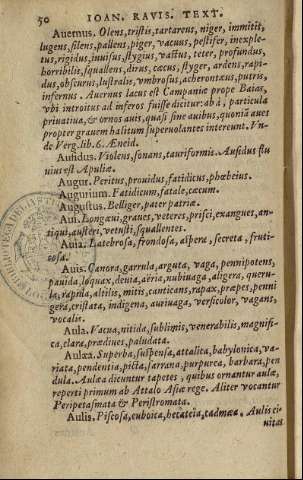 50 IOAN. RAVIS. TEXT.
Auernus. Olens, tristis, tartareus, niger, immitis,
lugens, silens, pallens, piger, vacuus, pestifer, inexple-
tus, rigidus, inuisus, stygius, vastus, teter, profundus,
horribilis, squallens, dirus, cæcus, styger, ardens, rapi-
dus, obscurus, lustralis, vmbrosus, acherontæus, putris,
infernus. Auernus lacus est Campaniæ prope Baias,
vbi introitus ad inferos fuisse dicitur: ab à, particula
priuatiua, & ornos auis, quasi sine auibus, quoniā aues
propter grauem halitum superuolantes intereunt. Vn-
de Verg. lib. 6. Æneid.
Aufidus. Violens, sonans, tauriformis. Aufidus flu
uius est Apuliæ.
Augur. Peritus, prouidus, fatidicus, phœbeius.
Augurium. Fatidicum, fatale, cæcum.
Augustus. Belliger, pater patriæ.
Aui. Longæui, graues, veteres, prisci, exangues, an-
tiqui, austeri, vetusti, squallentes.
Auia. Latebrosa, frondosa, aspera, secreta, fruti-
cosa.
Auis. Canora, garrula, arguta, vaga, pennipotens,
pauida, loquax, deuia, aëria, nubiuaga, aligera, queru-
la, rapida, altilis, mitis, cantitans, rapax, præpes, penni
gera, cristata, indigena, auriuaga, versicolor, vagans,
vocalis.
Aula. Vacua, nitida, sublimis, venerabilis, magnifi-
ca, clara, prædiues, paludata.
Aulæa. Superba, suspensa, attalica, babylonica, va-
riata, pendentia, picta, sarrana, purpurea, barbara, pen
dula. Aulæa dicuntur tapetes, quibus ornantur aulæ,
reperti primum ab Attalo Asiæ rege. Aliter vocantur
Peripetasmata & Peristromata.
Aulis. Piscosa, euboica, hecateia, cadmæa. Aulis ci-
uitas